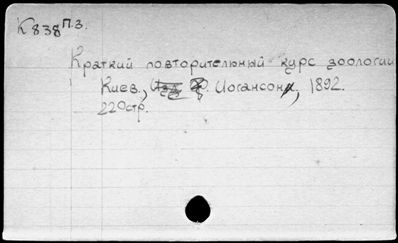 К838 П.З.
Краткий повторительный курс зоологии
Киев, Изд. Ф. Иогансон, 1892.
220стр.